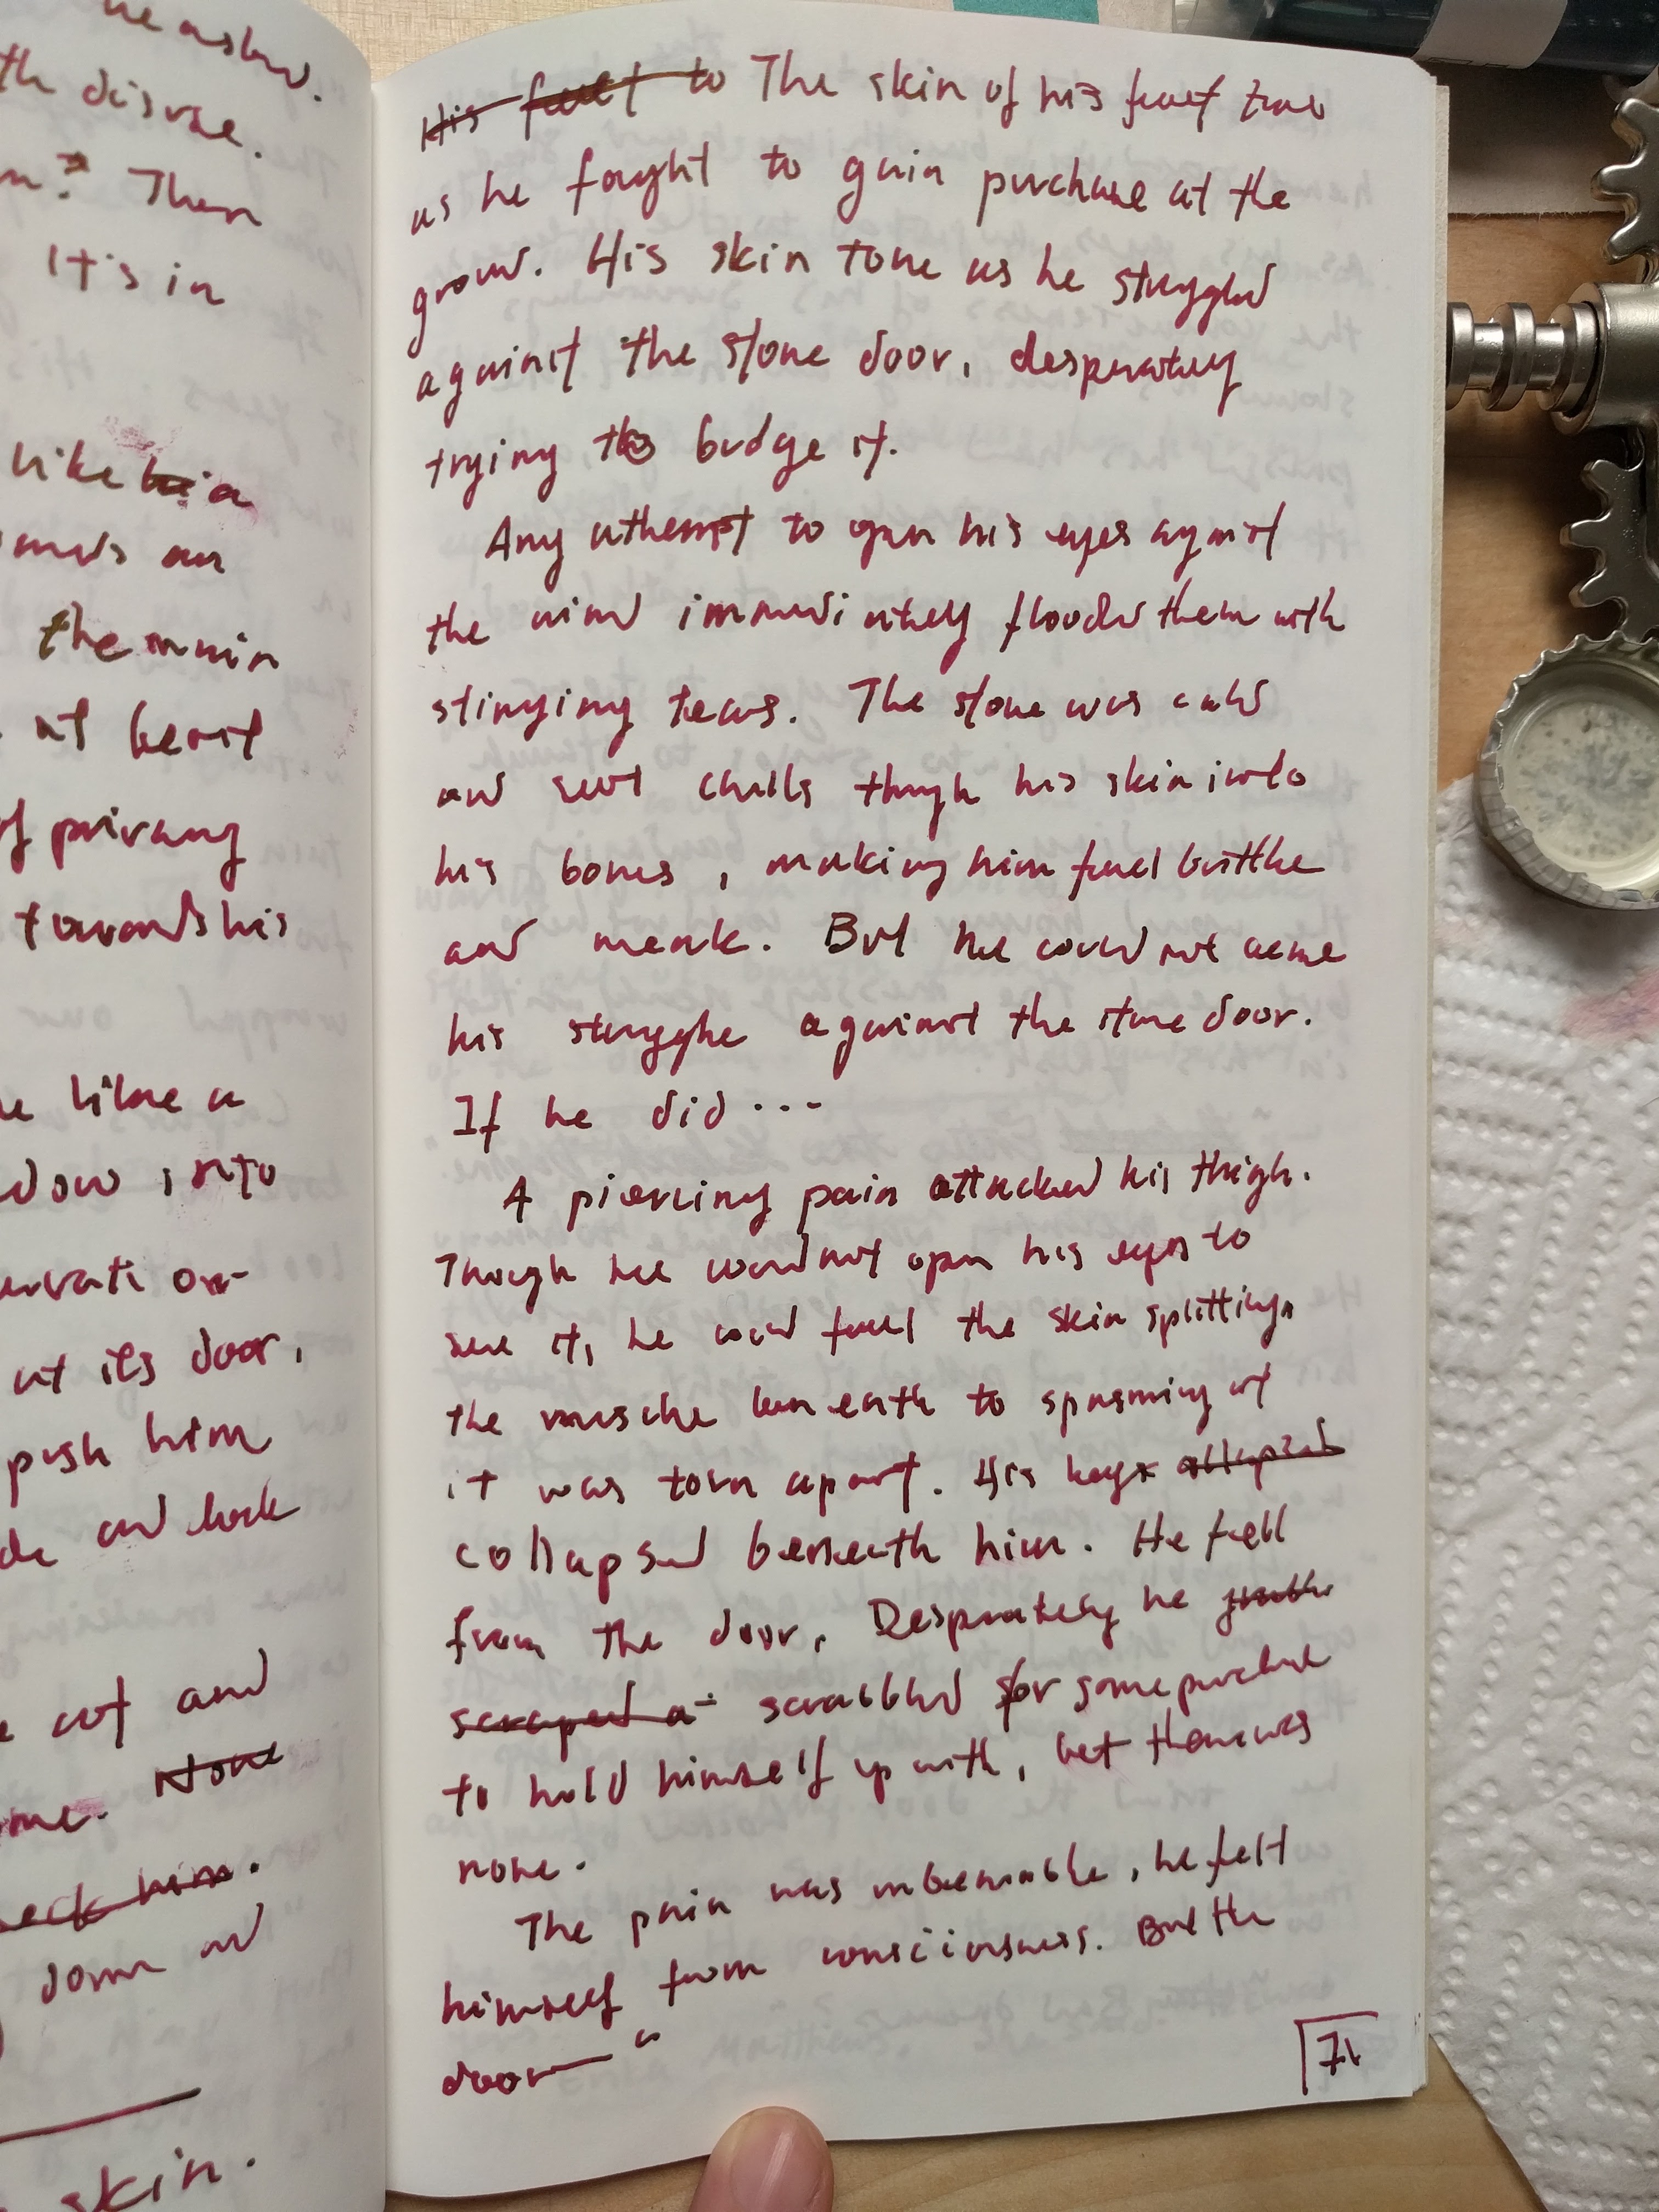 he asked.
th disuse.
n? Then
It's in
like hi a
ands on
the main
at best
of privacy
towards his
like a
dow into
ervati on
at its door,
push him
de and lock
cot and
ome. None
eck him.
down and
skin.
His feet to The skin of his feet tore
as he fought to gain purchase at the
ground. His skin tore as he struggled
against the stone door, desperately
trying to budge it.
Any attempt to open his eyes against
the wind immediately flooded them with
stinging tears. The stone was cold
and sent chills though his skin into
his bones, making him feel brittle
and weak. But he could not cease
his struggle against the stone door.
If he did ...
A piercing pain attacked his thigh.
Though he could not open his eyes to
see it, he could feel the skin splitting,
the muscle beneath to spasming at
it was torn apart. His legs collapsed
collapsed beneath him. He fell
from the door. Desperately he
scraped a scrabbled for some purchase
to hold himself up with, but there was
none.
The pain was unbearable, he felt
himself from consciousness. But the
door—"
71